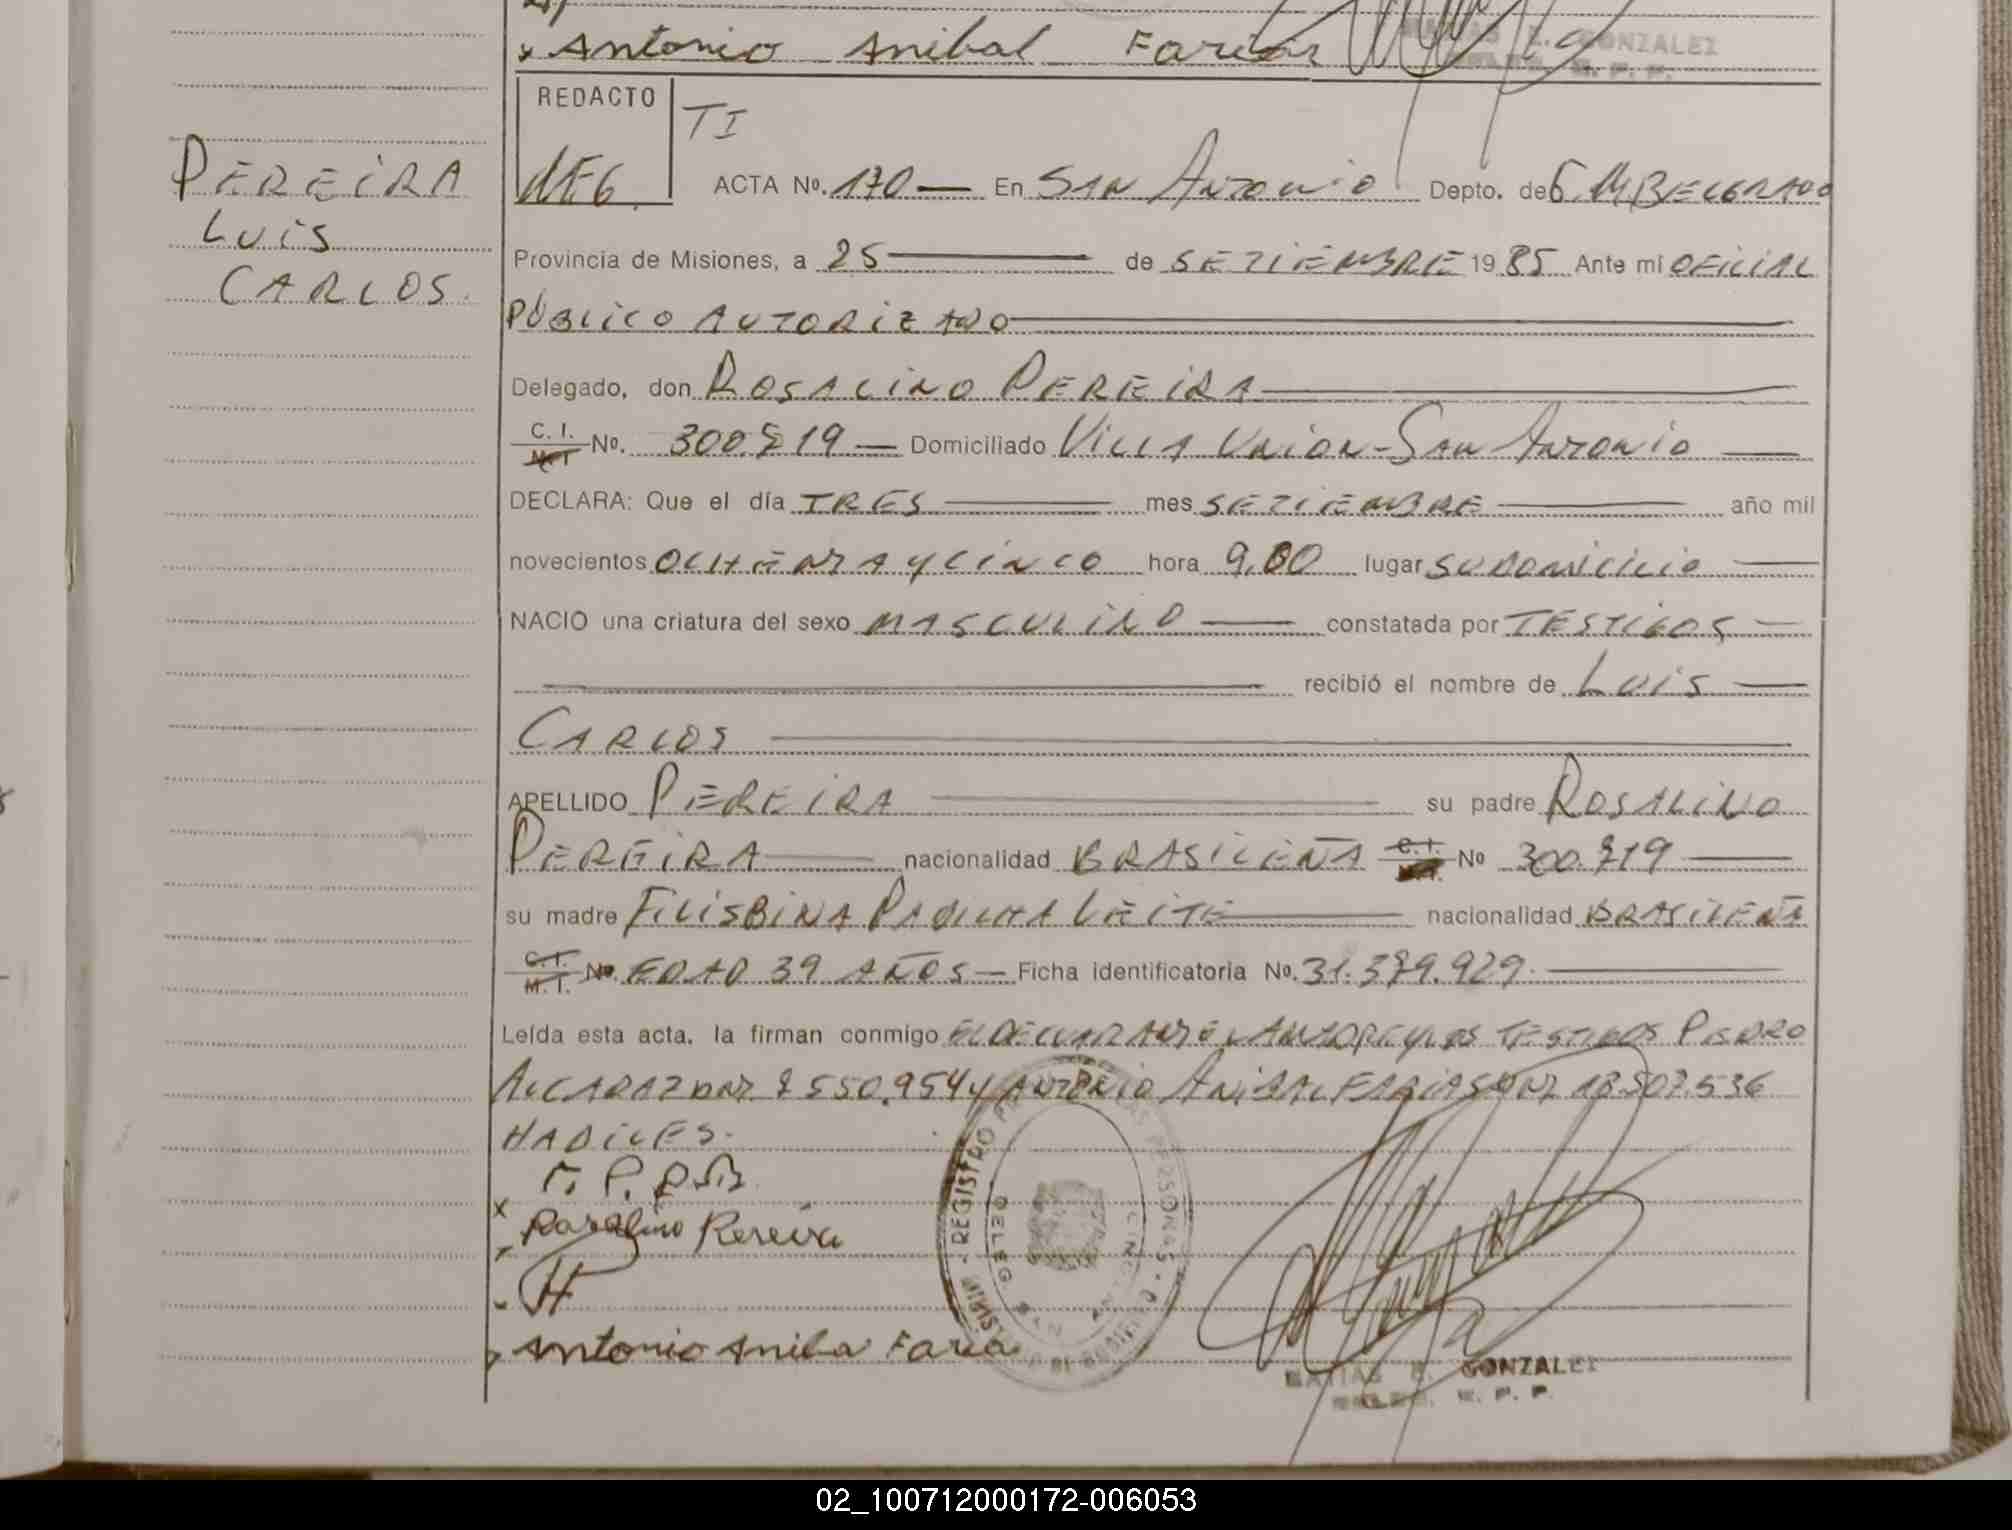 Antonio Anibal Farias
GONZALEZ
REDACTO
TI
ACTA Nº. 170 En SAN ANTONIO Depto. de G. M BELGRANO
PEREIRA
LUIS
CARLOS.
Provincia de Misiones, a 25 de SETIEMBRE 1985 Ante mi OFICIAL
PÚBLICO AUTORIZADO
Delegado, don ROSALINO PEREIRA
C. I. M.I Nº. 300.719 Domiciliado VILLA UNION-SAN ANTONIO
DECLARA: Que el día TRES mes SETIEMBRE año mil
novecientos OCHENTA Y CINCO hora 9,00 lugar SU DOMICILIO
NACIO una criatura del sexo MASCULINO constatada por TESTIGOS
recibió el nombre de LUIS
CARLOS
APELLIDO PEREIRA su padre ROSALINO
PEREIRA nacionalidad BRASILEÑA C.I. M.I. Nº 300.719
su madre FILISBINA PADILHA LEITE nacionalidad BRASILEÑA
C.I. M.I. Nº. EDAD 39 AÑOS Ficha identificatoria No. 31.379.929.
Leída esta acta, la firman conmigo EL DECLARANTE Y LOS TESTIGOS PEDRO
ALCARAZ DNI 7550.954 y ANTONIO ANIBAL FARIAS DNI 18.507.536
HABILES.
x
Rosalino Pereira
Antonio Aniba Faria
REGISTRO PERSONAS
DELEG SAN ANTONIO
MATIAS E. GONZALEZ